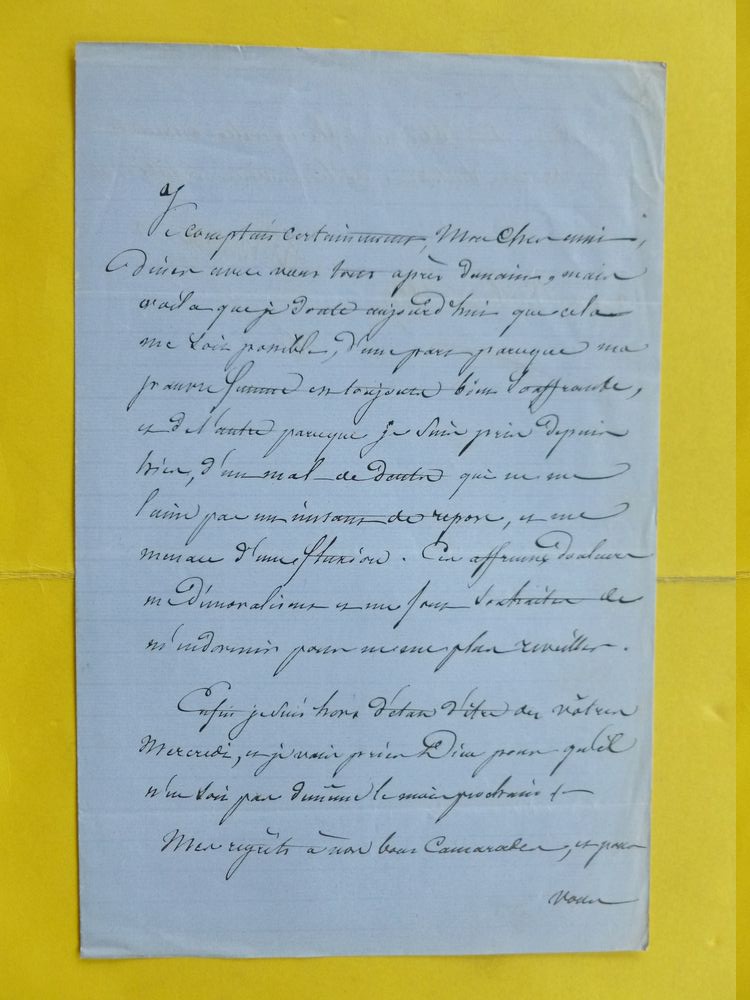 Je comptais certainement, Mon cher ami,
Diner avec vous tous après demain, mais
voila que je doute aujourd'hui que cela
me soit possible, d'une part parceque ma
pauvre femme est toujours bien souffrante,
et de l'autre parceque je suis pris depuis
hier, d'un mal de dents qui ne me
laisse pas un instant de repos, et me
menace d'une fluxion. Ces affreuses douleurs
me démoralisent et me font souhaiter de
m'endormir pour ne me plus reveiller.
Enfin je suis hors d'état d'être des vôtres
Mercredi, et je vais prier Dieu pour qu'il
n'en soit pas de même le mois prochain
Mes regrets à nos bons Camarades, et pour
vous